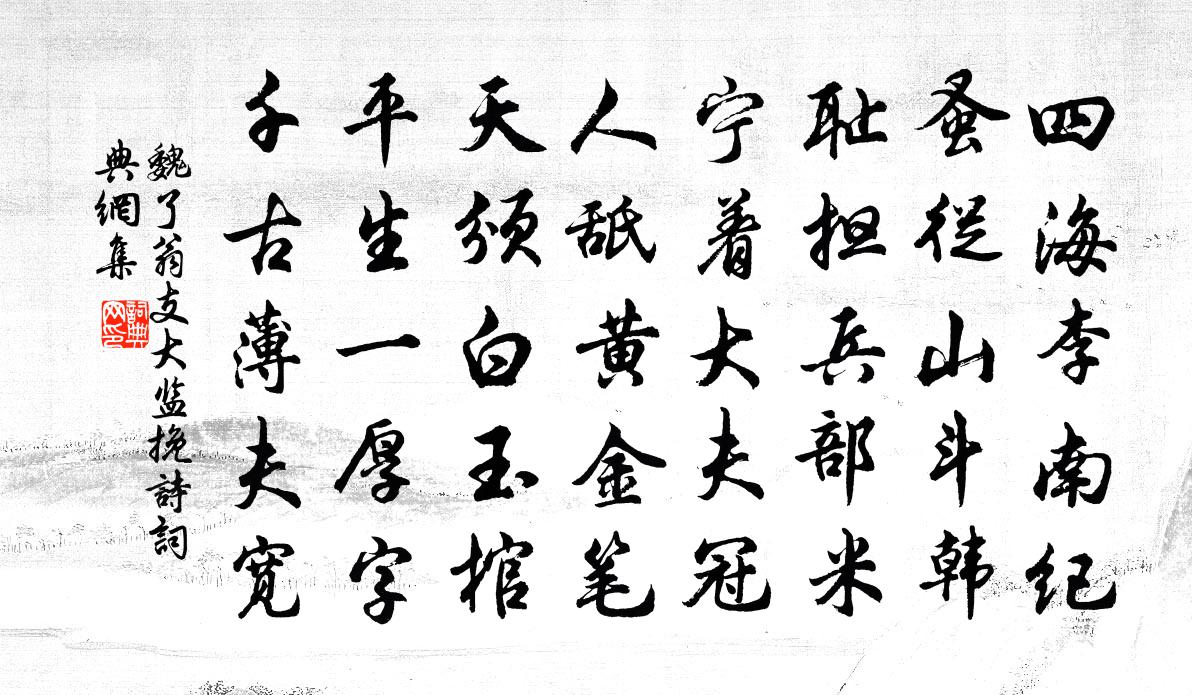 四海李南纪
蚤从山斗韩
耻担兵部米
宁着大夫冠
人舐黄金笔
天颁白玉棺
平生一厚字
千古薄夫宽
魏了翁支大监挽詩詞
典網集
詞典